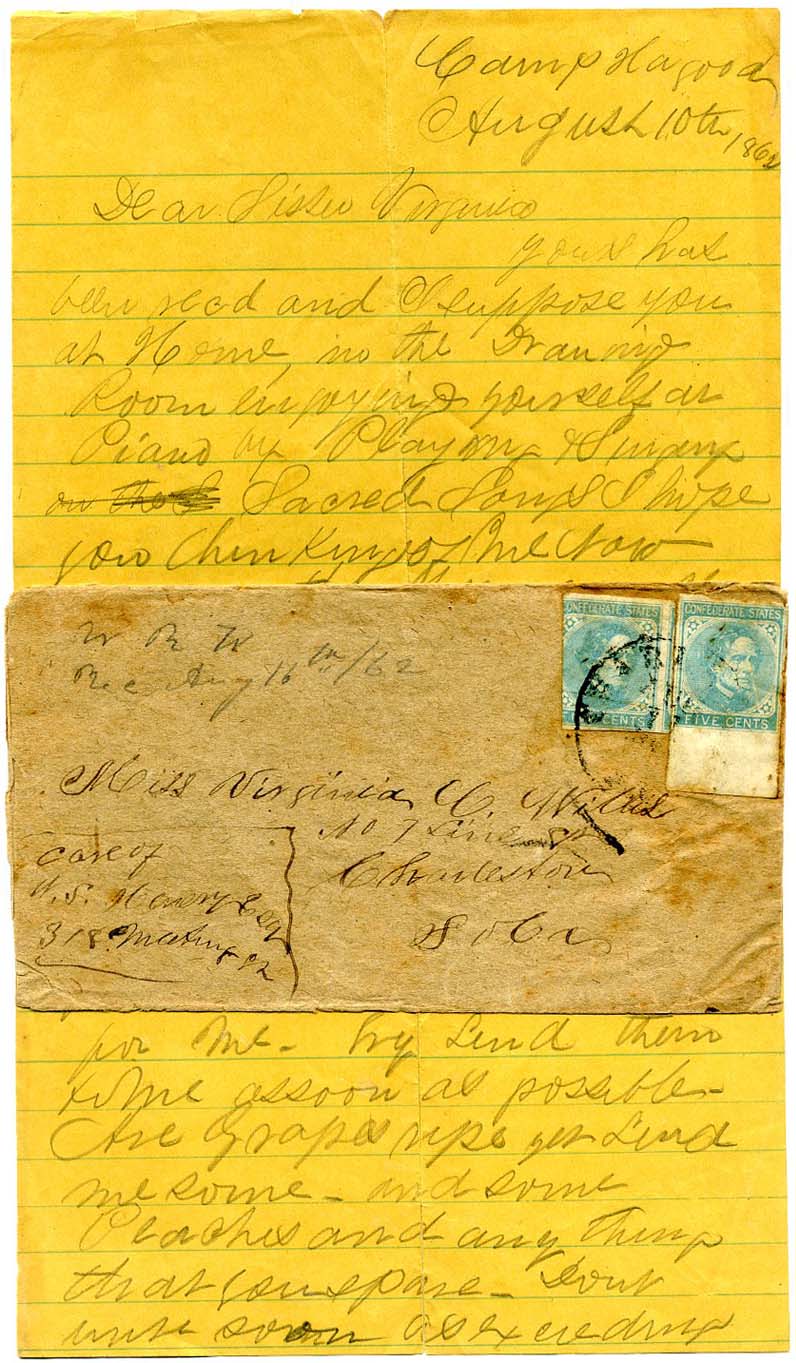 Camp Hagood
August 10th 1862
Dear Sister Virginia
yours has
been recd and I suppose you
at Home, in the Drawing
Room enjoying yourself at
Piano by Playing & Singing
on the Sacred Songs I hope
you thinking of Me Now
W R W
Rec Aug 16th/62
CONFEDERATE STATES
CENTS
CONFEDERATE STATES
FIVE CENTS
Miss Virginia C.
No 7 Line St
Charleston
So Ca
care of
Henery Esq
318 Meeting St
for Me - try Send them
to Me assoon as possible -
Are Grapes ripe yet Send
me some - and some
Peaches and any thing
that you spare - Dont
write soon as exceeding